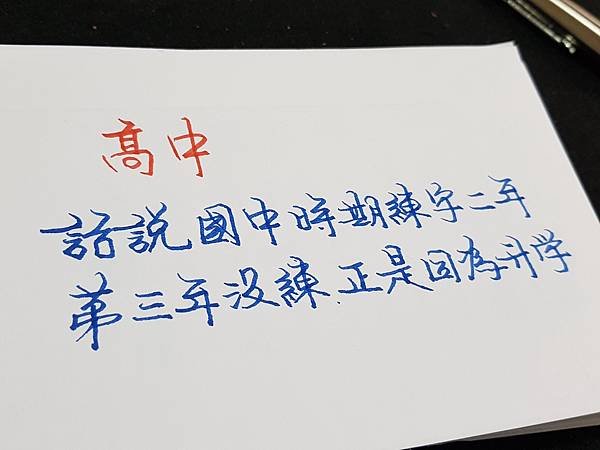 高中
話說國中時期練字二年
第三年沒練.正是因為升学